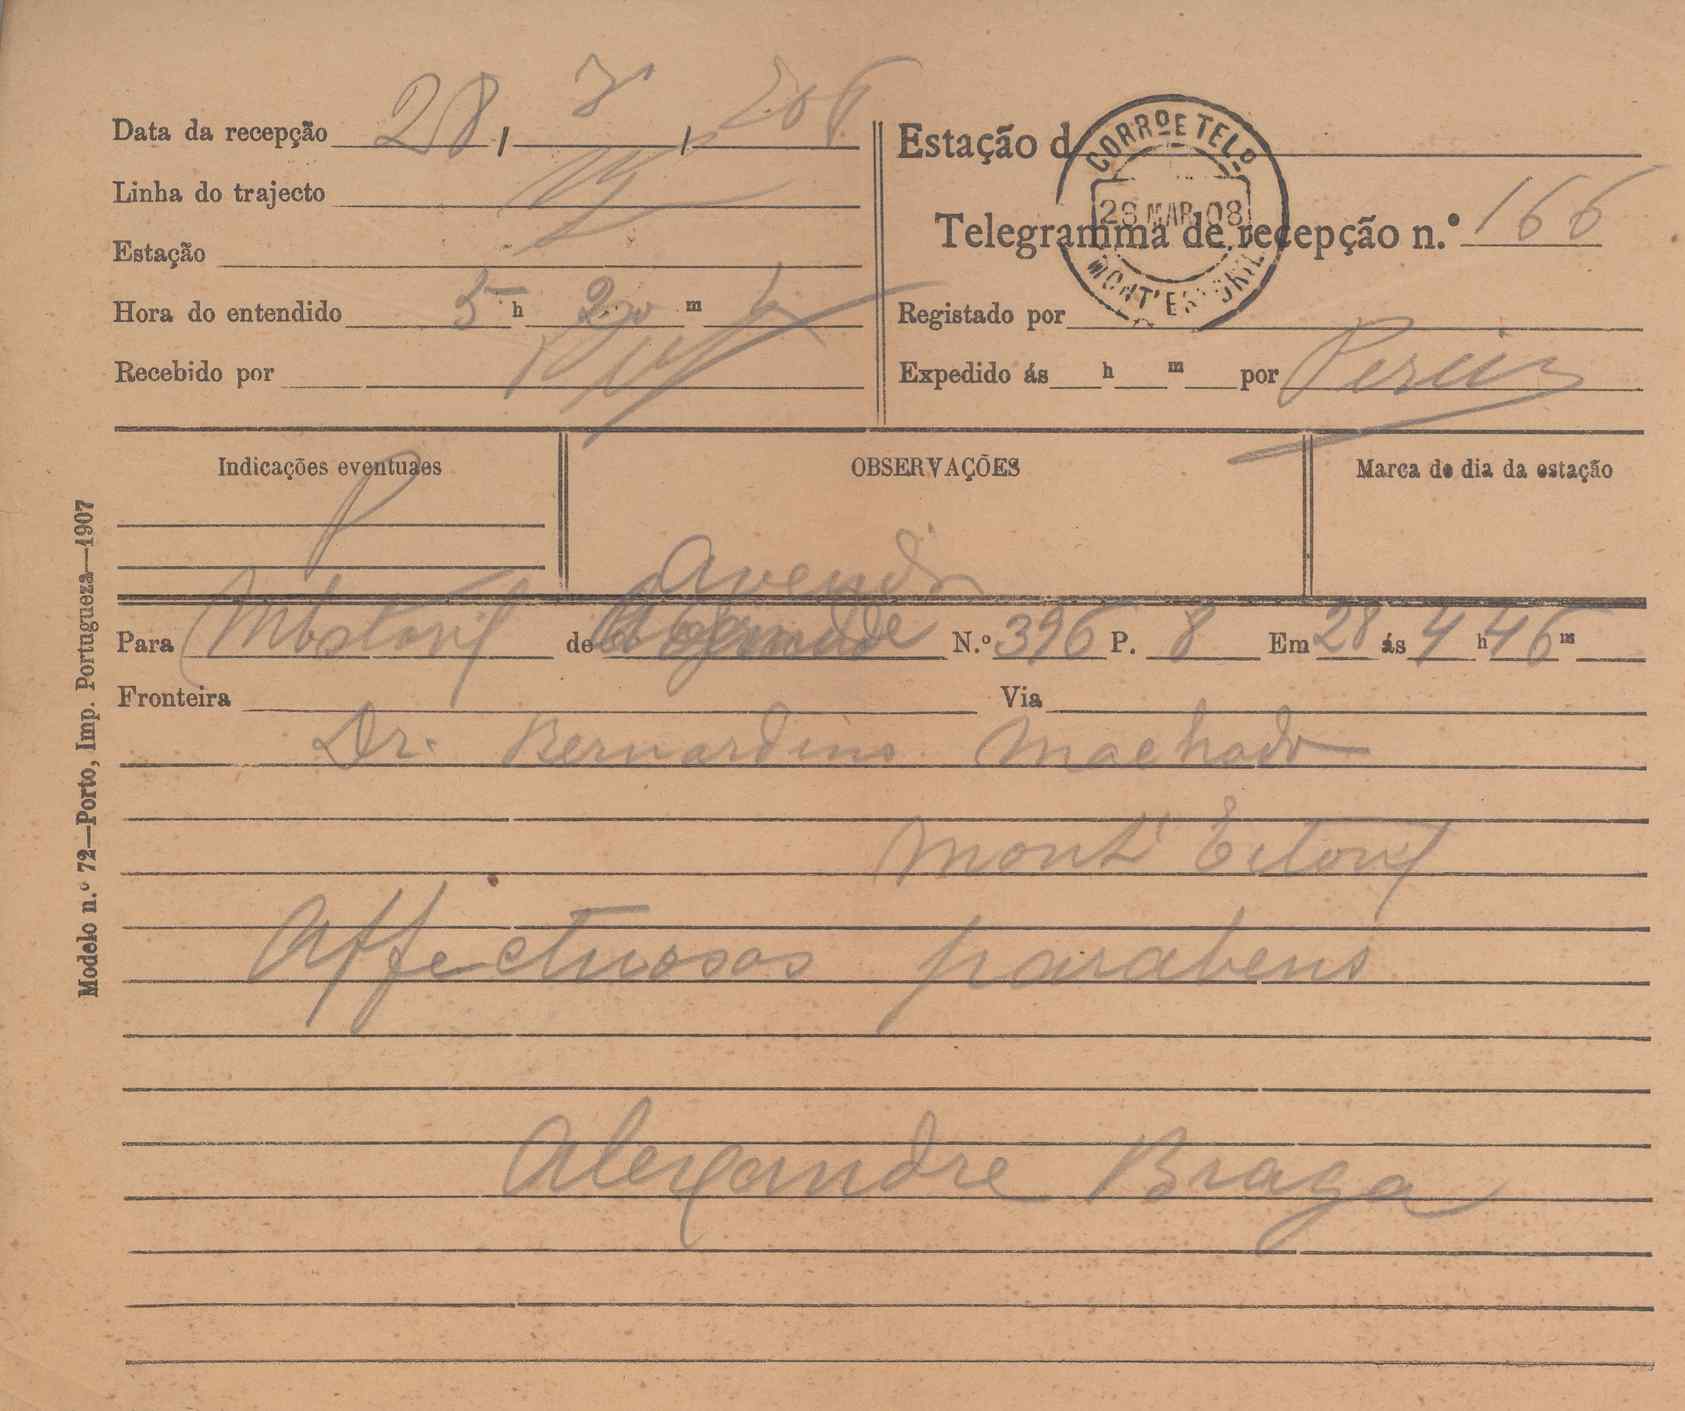 Data da recepção 28, 3,
Linha do trajecto
Estação
Hora do entendido 5 h 20 m
Recebido por
Estação d
CORRº E TELº
28 MAR. 08
MONT'ESTORIL
Telegramma de recepção n.º 166
Registado por
Expedido ás h m por Pereira
Indicações eventuaes
OBSERVAÇÕES
Marca do dia da estação
P
Avenida
Para MEstoril de N.º 396 P. 8 Em 28 ás 4 h 46 m
Fronteira Via
Dr. Bernardino Machado
Mont' Estoril
Affectuosos parabens
Alexandre Braga
Modelo n.º 72—Porto, Imp. Portugueza—1907